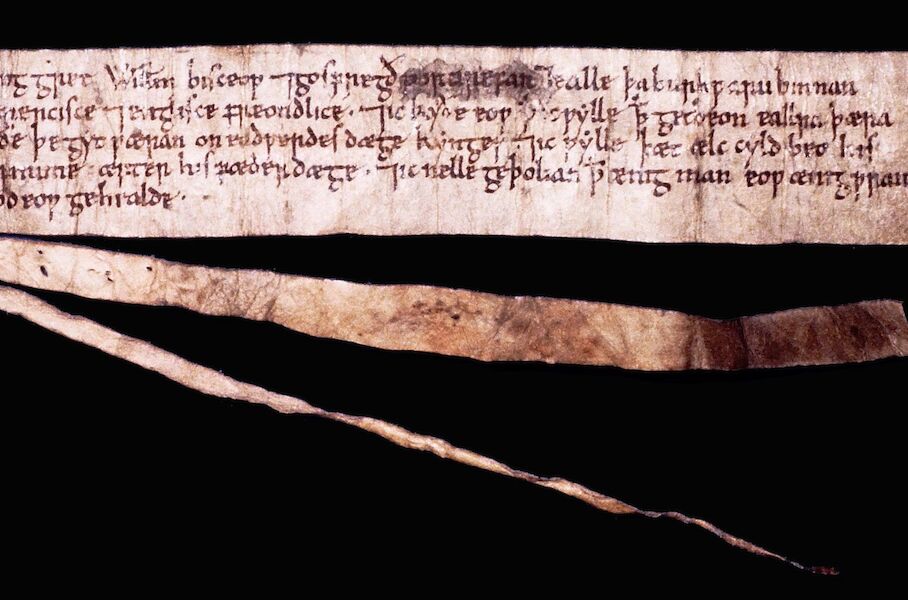 ng gret Willm bisceop ⁊ gosfregð portirefan ⁊ ealle þa burhƿaru binnan
frencisce ⁊ englisce freondlice · ⁊ ic kyðe eoƿ ꝥ ic ƿylle ꝥ get beon eallra þæra
ðe þe gyt ƿæran on eadƿerdes dæge kynges · ⁊ ic ƿylle þæt ælc cyld beo his
fnume · æfter his fæder dæge · ⁊ ic nelle geþolian ꝥ ænig man eoƿ ænig ƿrang
od eoƿ gehealde ·